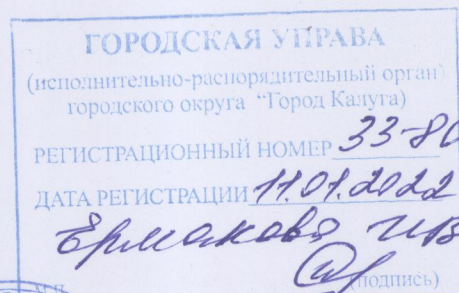 ГОРОДСКАЯ УПРАВА
(исполнительно-распорядительный орган)
городского округа “Город Калуга)
РЕГИСТРАЦИОННЫЙ НОМЕР 33-80
ДАТА РЕГИСТРАЦИИ 11.01.2022
Ермакова ИВ
(подпись)